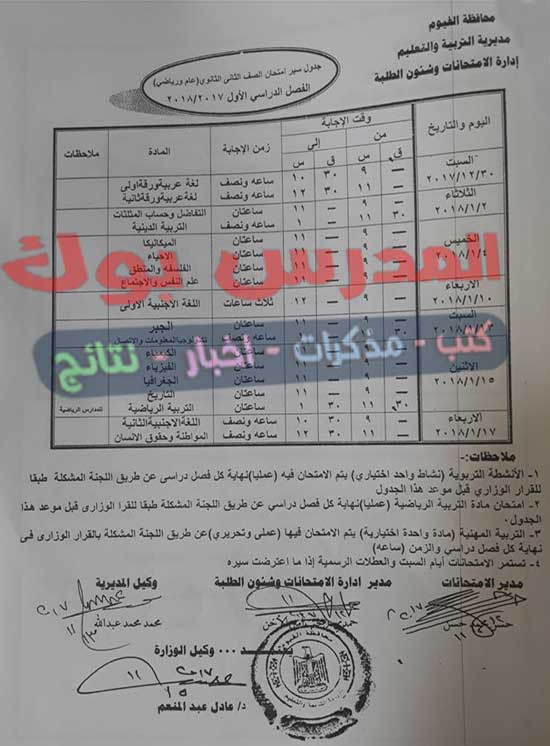 محافظة الفيوم
مديرية التربية والتعليم
إدارة الامتحانات وشئون الطلبة
جدول سير امتحان الصف الثانى الثانوي (عام ورياضي)
الفصل الدراسي الأول ٢٠١٨/٢٠١٧
اليوم والتاريخ وقت الإجابة زمن الإجابة المادة ملاحظات
من إلى
ق س ق س
السبت ٢٠١٧/١٢/٣٠
— ٩ ٣٠ ١٠ ساعه ونصف لغة عربية ورقة اولى
— ١١ ٣٠ ١٢ ساعه ونصف لغة عربية ورقة ثانية
الثلاثاء ٢٠١٨/١/٢
— ٩ — ١١ ساعتان التفاضل وحساب المثلثات
٣٠ ١١ — ١ ساعه ونصف التربية الدينية
الخميس ٢٠١٨/١/٤
ساعتان الميكانيكا
ساعتان الاحياء
ساعتان الفلسفة والمنطق
ساعتان علم النفس والاجتماع
الاربعاء ٢٠١٨/١/١٠
— ٩ — ١٢ ثلاث ساعات اللغة الاجنبية الاولى
السبت
ساعتان الجبر
تكنولوجيا المعلومات والاتصال
الاثنين ٢٠١٨/١/١٥
ساعتان الكيمياء
ساعتان الفيزياء
ساعتان الجغرافيا
ساعتان التاريخ
٣٠ ١١ ٣٠ ١ ساعتان التربية الرياضية للمدارس الرياضية
الاربعاء ٢٠١٨/١/١٧
— ٩ ٣٠ ١٠ ساعه ونصف اللغة الاجنبية الثانية
— ١١ ٣٠ ١٢ ساعه ونصف المواطنة وحقوق الانسان
المدرس بوك
كتب - مذكرات - اخبار - نتائج
ملاحظات:-
١- الأنشطة التربوية (نشاط واحد اختياري) يتم الامتحان فيه (عمليا) نهاية كل فصل دراسى عن طريق اللجنة المشكلة طبقا
للقرار الوزاري قبل موعد هذا الجدول
٢- امتحان مادة التربية الرياضية (عمليا) نهاية كل فصل دراسي عن طريق اللجنة المشكلة طبقا للقرا الوزارى قبل موعد هذا
الجدول.
٣- التربية المهنية (مادة واحدة اختيارية) يتم الامتحان فيها (عملى وتحريري) عن طريق اللجنة المشكلة بالقرار الوزارى فى
نهاية كل فصل دراسي والزمن (ساعه)
٤- تستمر الامتحانات أيام السبت والعطلات الرسمية إذا ما اعترضت سيره
مدير الامتحانات مدير ادارة الامتحانات وشئون الطلبة وكيل المديرية
محمد محمد عبدالله
يعتمد ٠٠٠ وكيل الوزارة
د/ عادل عبد المنعم